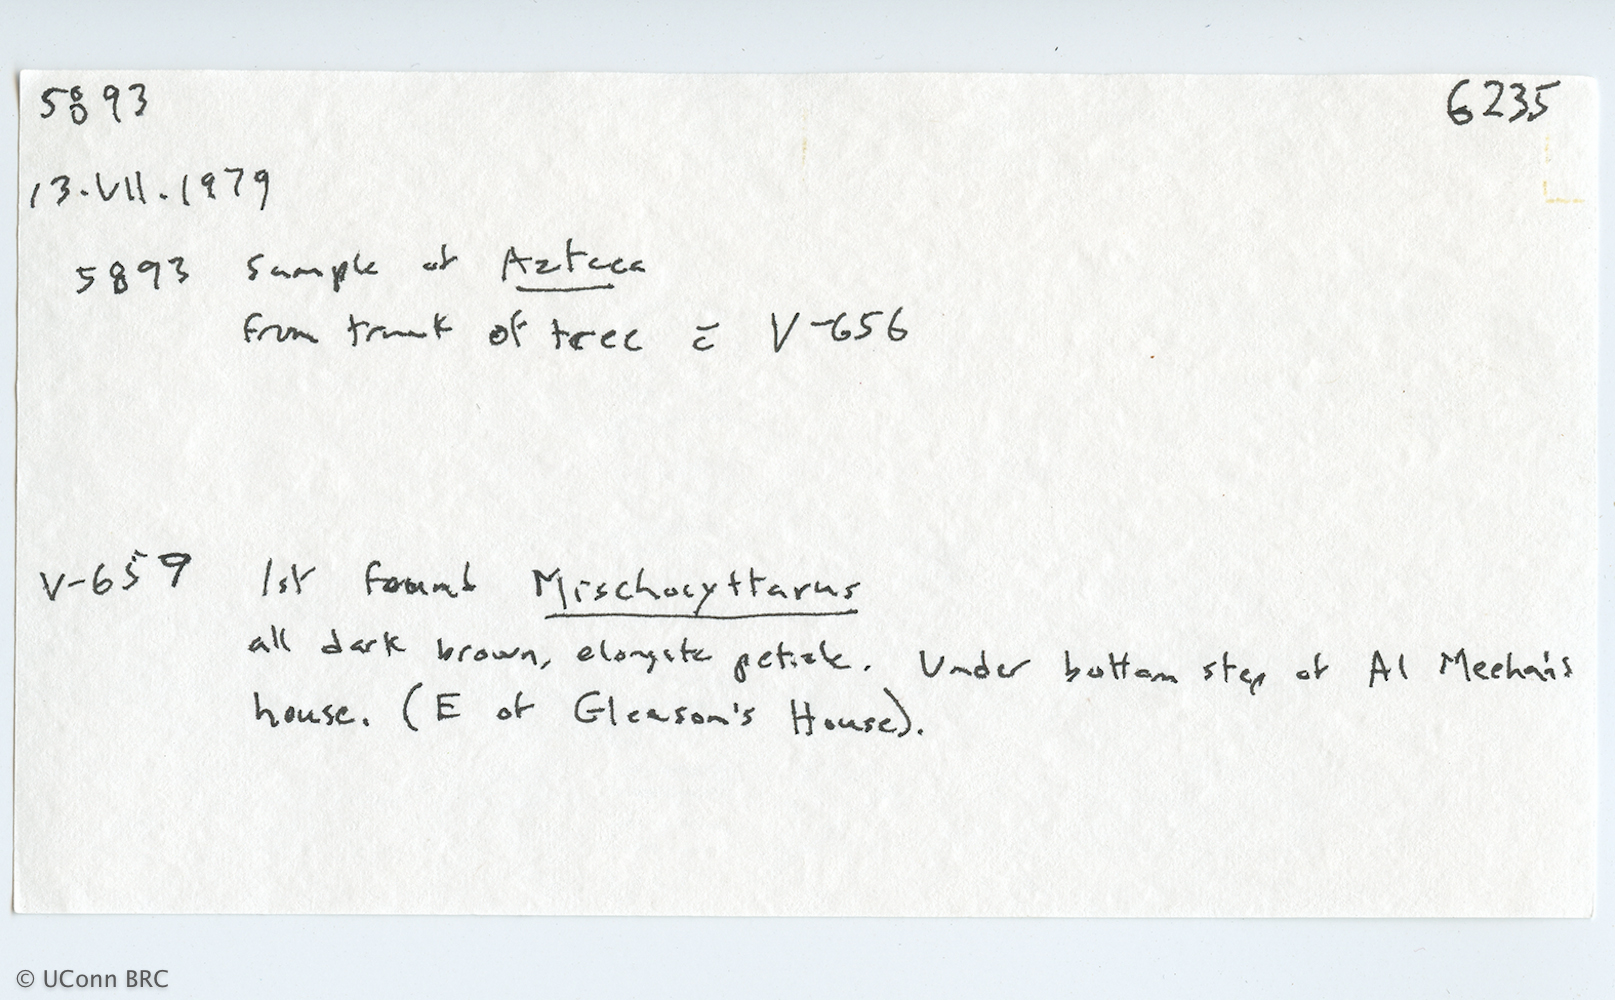 5893 6235
13.VII.1979
5893 Sample of Azteca
from trunk of tree c̄ V-656
V-659 1st found Mischocyttarus
all dark brown, elongate petiole. Under bottom step of Al Meehan's
house. (E of Gleason's House).
© UConn BRC